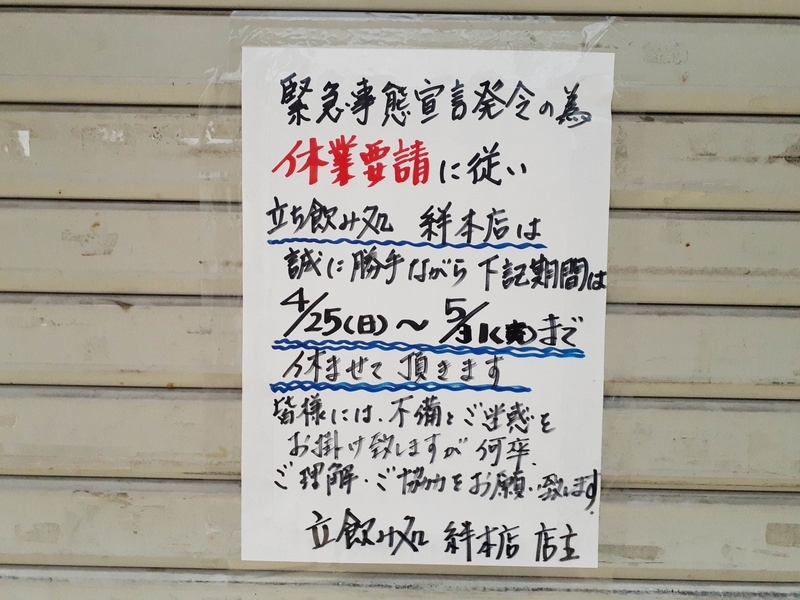 緊急事態宣言発令の為
休業要請に従い
立ち飲み処 絆本店は
誠に勝手ながら下記期間は
4/25(日)〜5/31()まで
休ませて頂きます
皆様には、不備とご迷惑を
お掛け致しますが何卒、
ご理解・ご協力をお願い致します。
立飲み処 絆本店 店主